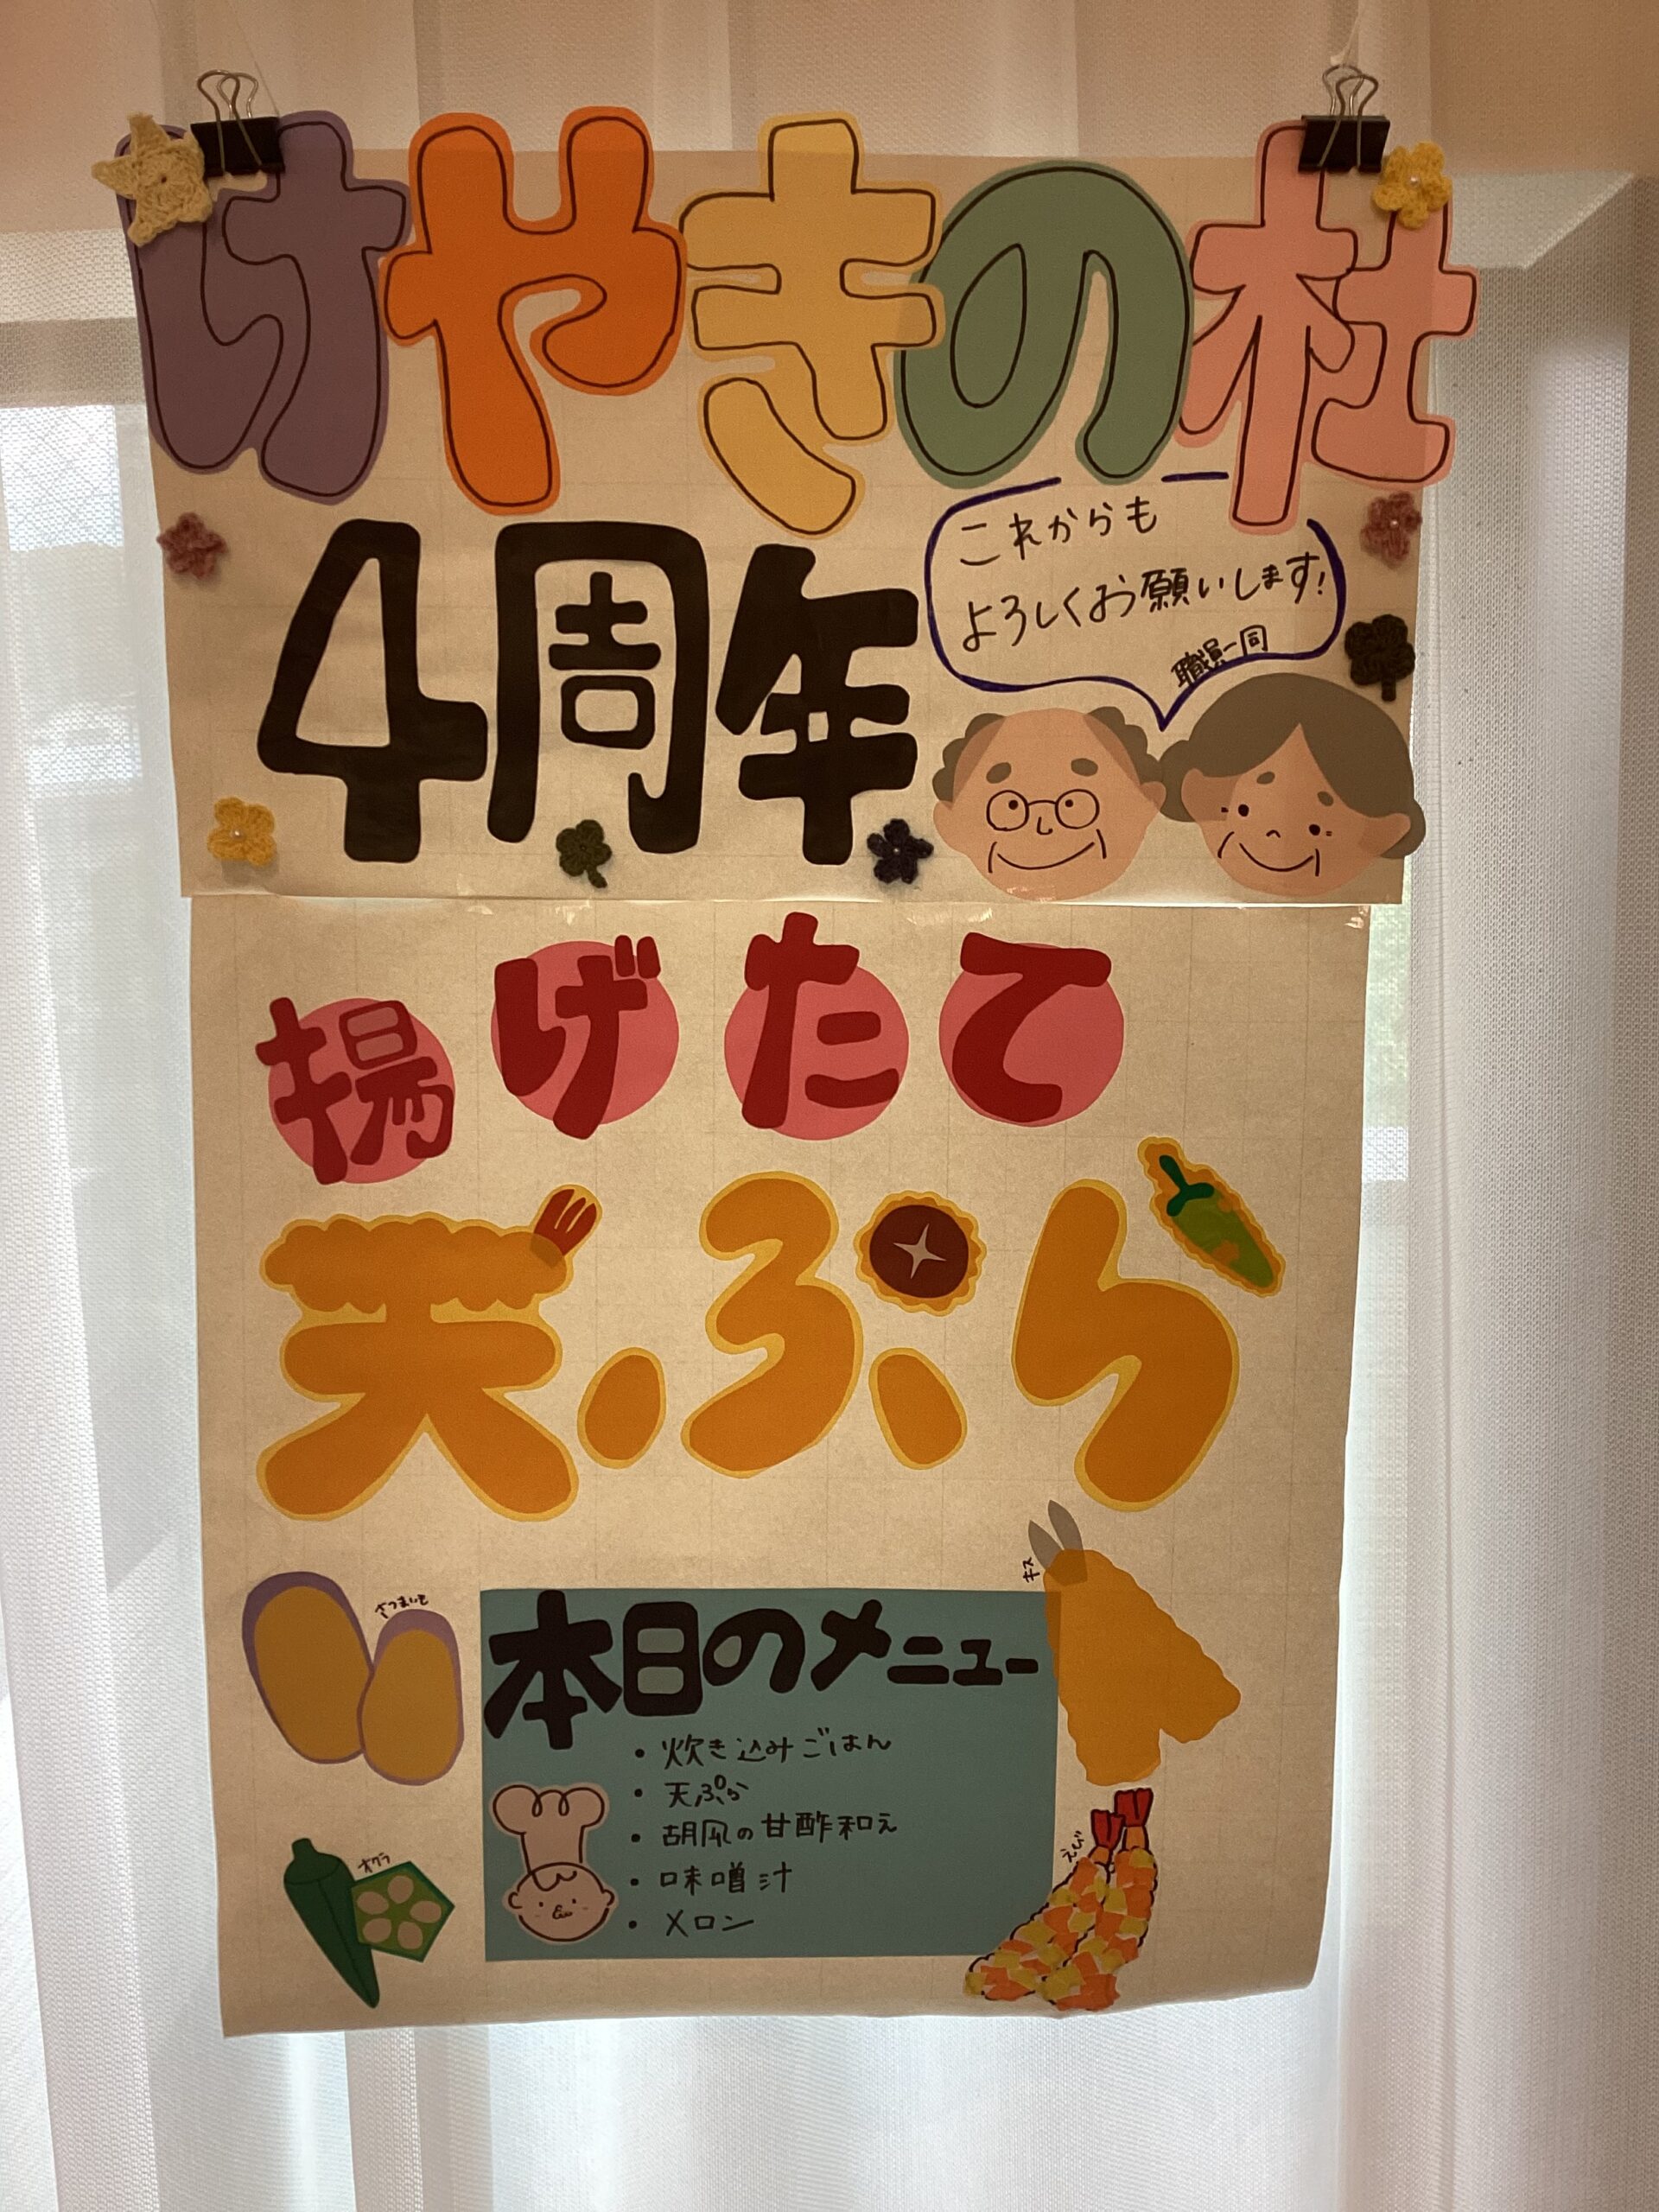 けやきの杜
4周年
これからも
よろしくお願いします!
職員一同
揚げたて
天ぷら
キス
さつまいも
本日のメニュー
・炊き込みごはん
・天ぷら
・胡瓜の甘酢和え
・味噌汁
・メロン
オクラ
えび